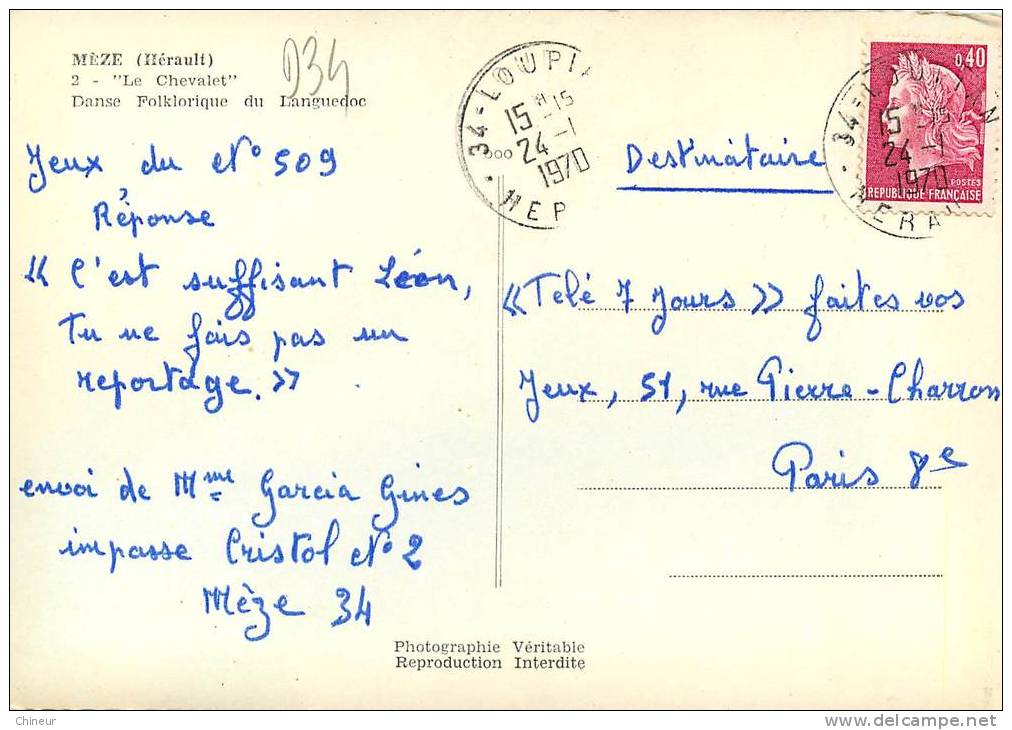 MÈZE (Hérault)
2 - "Le Chevalet"
Danse Folklorique du Languedoc
D34
Jeux du N° 509
Réponse
« C'est suffisant Léon,
Tu ne fais pas un
reportage. »
envoi de Mme Garcia Gines
impasse Cristol N° 2
Mèze 34
34 - LOUPIA
15 H -15
24 -1
1970
HER
34 - LOUPIAN
15 H -15
24 -1
1970
HERAU
0,40
POSTES
REPUBLIQUE FRANÇAISE
Destinataire
« Télé 7 Jours » faites vos
Jeux, 51, rue Pierre-Charron
Paris 8e
Photographie Véritable
Reproduction Interdite
Chineur
delcampe.net